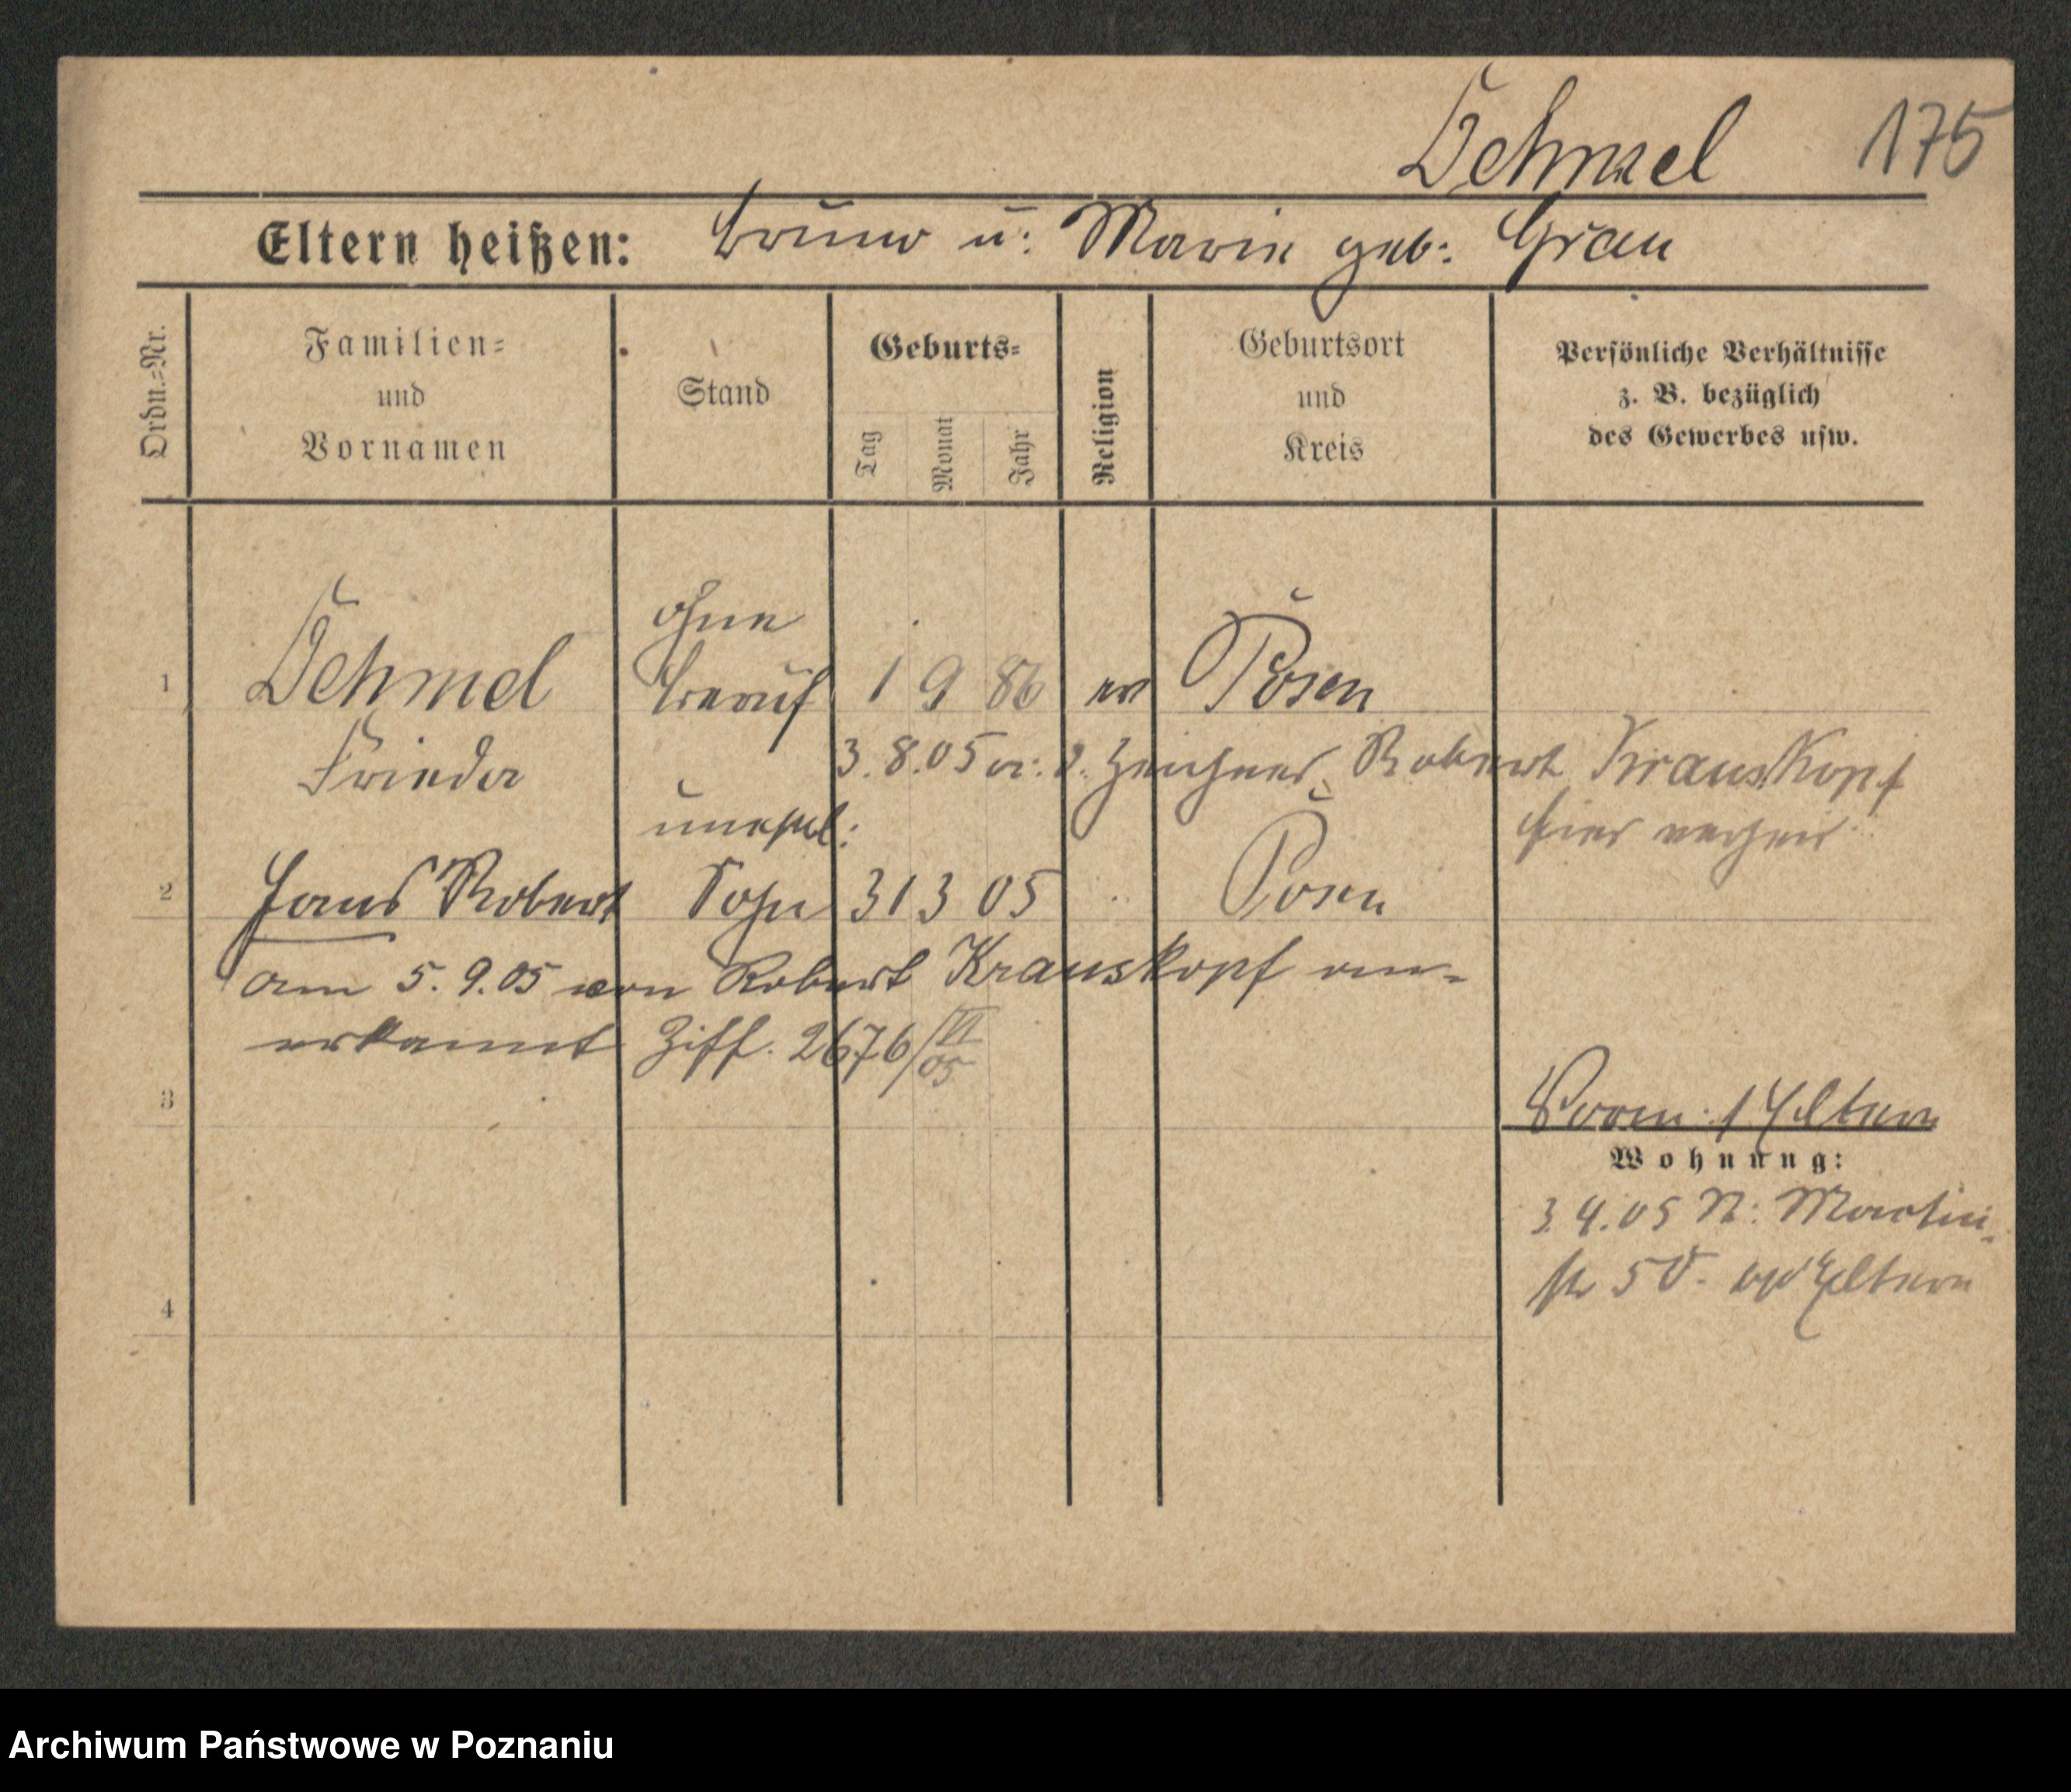 Dehmel 175
Eltern heißen: Bruno u: Marie geb: Grau
Ordn.=Nr.
Familien=
und
Vornamen
Stand
Geburts=
Tag
Monat
Jahr
Religion
Geburtsort
und
Kreis
Persönliche Verhältnisse
z. B. bezüglich
des Gewerbes usw.
ohne
1 Dehmel Beruf 1 9 86 ev Posen
Frieda 3.8.05 m. d. Zeichner Robert Krauskopf
unehel: hier verheir
2 Hans Robert Sohn 31 3 05 " Posen
am 5.9.05 von Robert Krauskopf an-
erkannt Ziff. 2676/VI
05
3
Vorm: 1/ Eltern
Wohnung:
3 4.05 N: Martin-
str 50. b/d Eltern
4
Archiwum Państwowe w Poznaniu